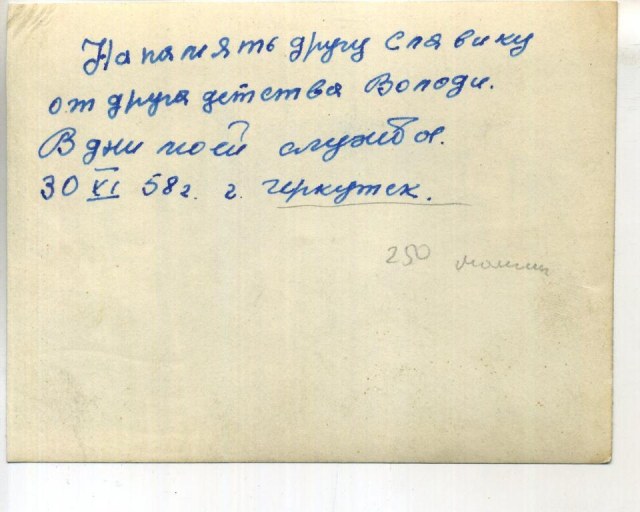 На память другу Славику
от друга детства Володи.
В дни моей службы.
30 XI 58 г. г. Иркутск.
250